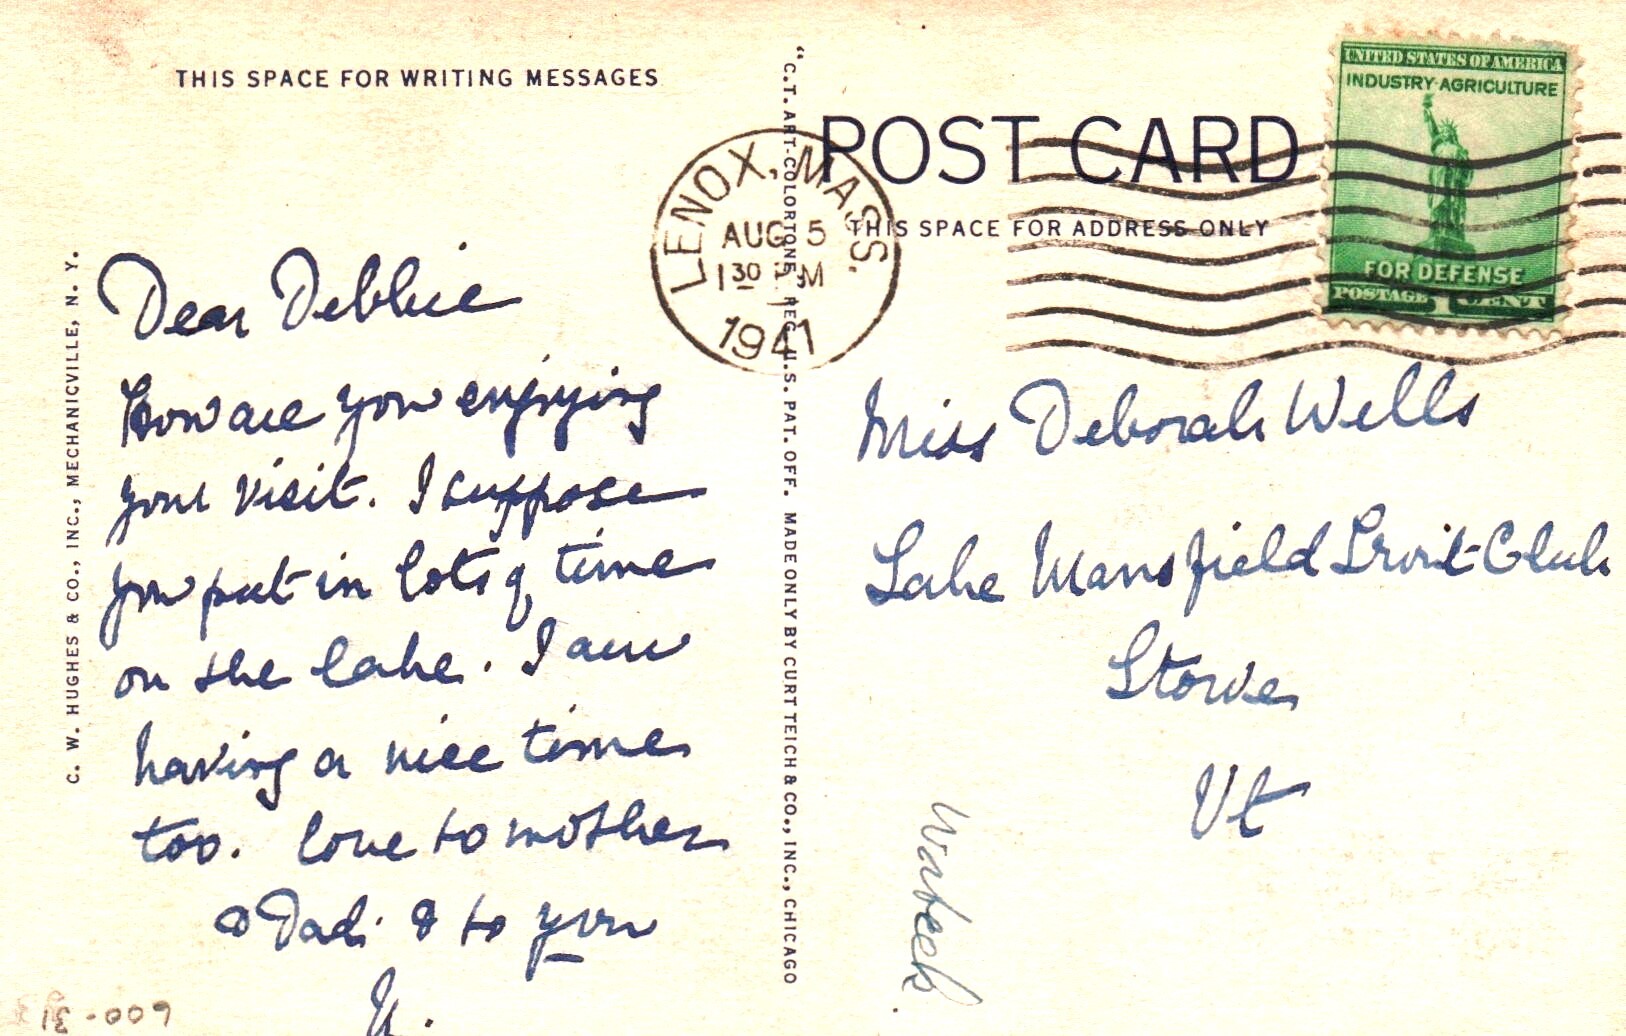 THIS SPACE FOR WRITING MESSAGES
C. W. HUGHES & CO., INC., MECHANICVILLE, N. Y.
Dear Debbie
How are you enjoying
your visit. I suppose
you put in lots of time
on the lake. I am
having a nice time
too. love to mother
& Dad. & to you
"C.T. ART-COLORTONE" REG. U.S. PAT. OFF. MADE ONLY BY CURT TEICH & CO., INC., CHICAGO
LENOX, MASS.
AUG 5
1 30 PM
1941
POST CARD
THIS SPACE FOR ADDRESS ONLY
UNITED STATES OF AMERICA
INDUSTRY·AGRICULTURE
FOR DEFENSE
POSTAGE 1 CENT
Miss Deborah Wells
Lake Mansfield Trout Club
Stowe
Vt